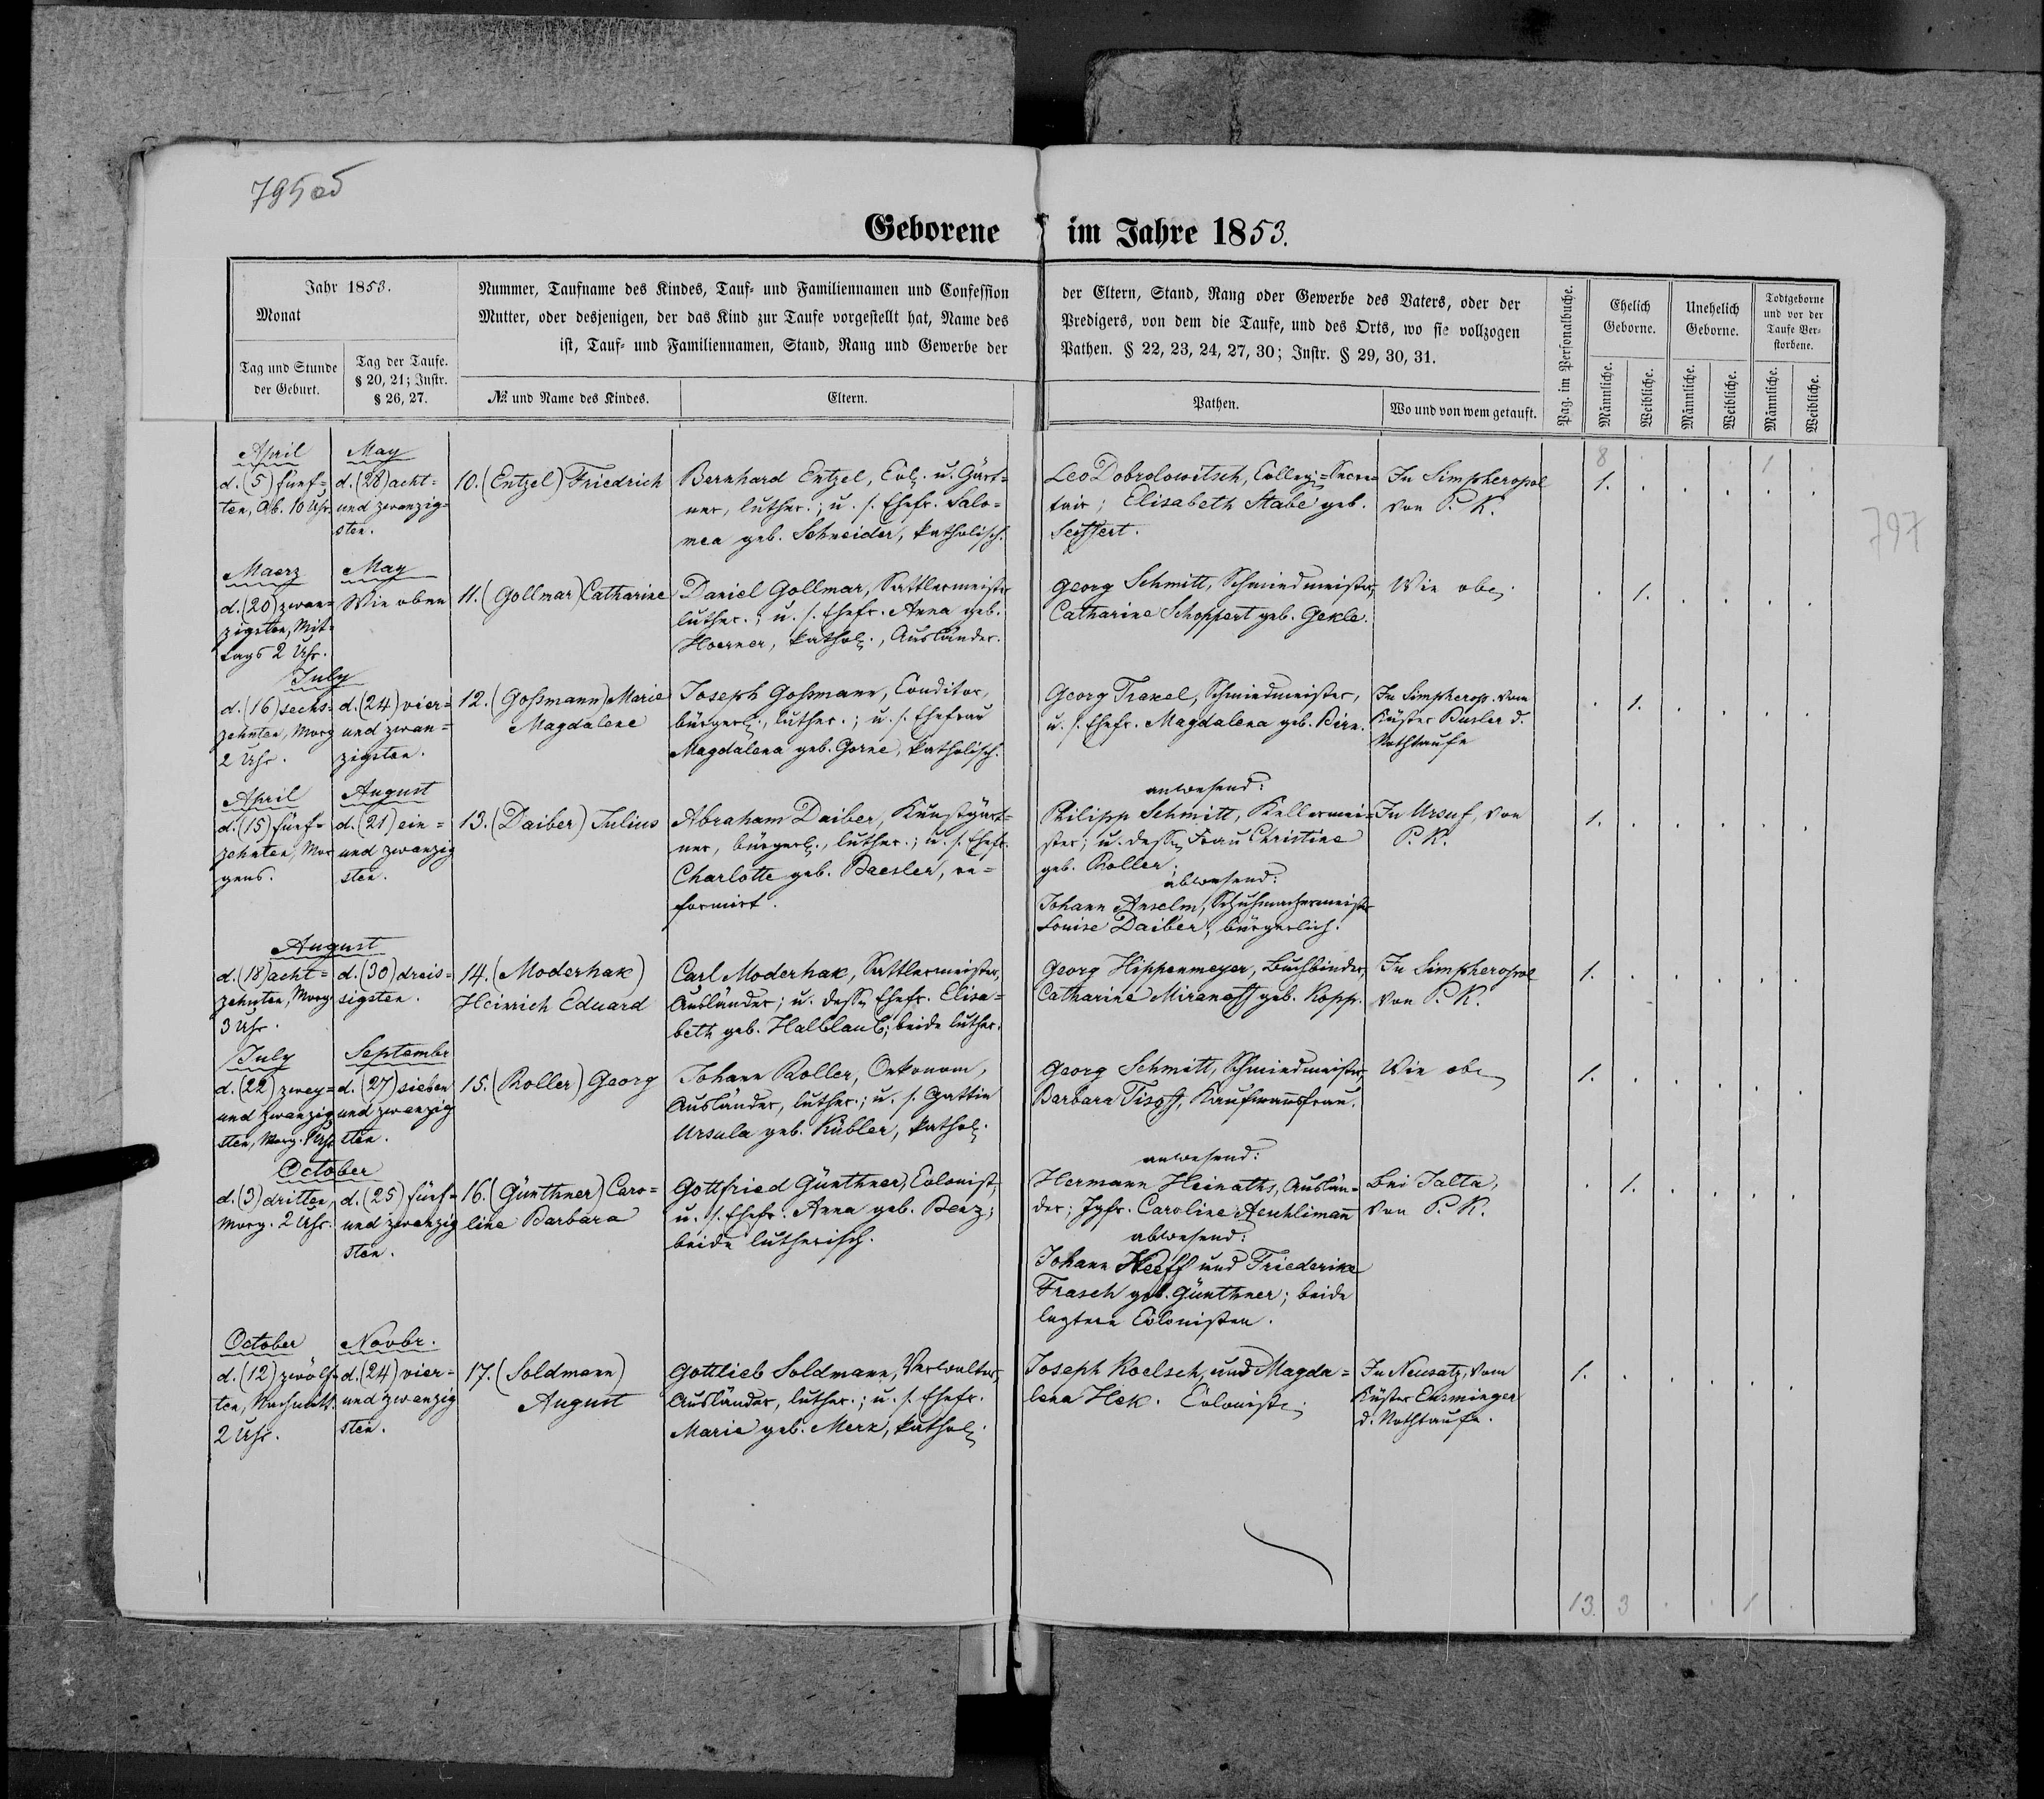 795 об
Geborene im Jahre 1853.
Jahr 1853.
Monat
Tag und Stunde
der Geburt.
Tag der Taufe.
§ 20, 21; Instr.
§ 26, 27.
Nummer, Taufname des Kindes, Tauf- und Familiennamen und Confession
Mutter, oder desjenigen, der das Kind zur Taufe vorgestellt hat, Name des
ist, Tauf- und Familiennamen, Stand, Rang und Gewerbe der
№ und Name des Kindes.
Eltern.
der Eltern, Stand, Rang oder Gewerbe des Vaters, oder der
Predigers, von dem die Taufe, und des Orts, wo sie vollzogen
Pathen. § 22, 23, 24, 27, 30; Instr. § 29, 30, 31.
Pathen.
Wo und von wem getauft.
Pag. im Personalbuche.
Ehelich
Geborne.
Unehelich
Geborne.
Todtgeborne
und vor der
Taufe Ver-
storbene.
Männliche.
Weibliche.
Männliche.
Weibliche.
Männliche.
Weibliche.
8 1
797
April
d. (5) fünf-
ten, Ab. 10 Uhr.
May
d. (28) acht-
und zwanzig-
sten.
10. (Entzel) Friedrich
Bernhard Entzel, Col. u. Gärt-
ner, luther.; u. s. Ehefr. Salo-
mea geb. Schneider, katholisch.
Leo Dobrolowitsch, Colleg.-Secre-
tair; Elisabeth Stabe geb.
Seiffert.
In Simpheropol
von P. K.
1.
Maerz
d. (20) zwan-
zigsten, Mit-
tags 2 Uhr.
May
Wie oben
11. (Gollmar) Catharine
Daniel Gollmar, Sattlermeister
luther.; u. s. Ehefr. Anna geb.
Hoerner, kathol., Ausländer.
Georg Schmitt, Schmiedmeister,
Catharine Schoppert geb. Gekle.
Wie oben
1.
July
d. (16) sechs-
zehnten, Morg
2 Uhr.
d. (24) vier-
und zwan-
zigsten.
12. (Goßmann) Marie
Magdalene
Joseph Goßmann, Conditor,
bürgerl., luther.; u. s. Ehefrau
Magdalena geb. Gorne, katholisch.
Georg Traxel, Schmiedmeister,
u. s. Ehefr. Magdalena geb. Birn.
In Simpherop. vom
Küster Busler d.
Nothtaufe
1.
April
d. (15) fünf-
zehnten, Mor
gens.
August
d. (21) ein-
und zwanzig
sten.
13. (Daiber) Julius
Abraham Daiber, Kunstgärt-
ner, bürgerl., luther.; u. s. Ehefr.
Charlotte geb. Baesler, re-
formirt.
anwesend:
Philipp Schmitt, Kellermei-
ster; u. dessen Frau Christine
geb. Roller.
abwesend:
Johann Anselm, Schuhmachermeister
Louise Daiber, bürgerlich.
In Ursuf, von
P. K.
1.
August
d. (18) acht-
zehnten, Morg
3 Uhr.
d. (30) dreis-
sigsten.
14. (Moderhak)
Heinrich Eduard
Carl Moderhak, Sattlermeister,
Ausländer; u. dessen Ehefr. Elisa-
beth geb. Halblaub; beide luther.
Georg Hippenmeyer, Buchbinder,
Catharine Miranoff geb. Kopp.
In Simpheropol
von P. K.
1.
July
d. (22) zwey-
und zwanzig
sten, Morg. 1 Uhr
September
d. (27) sieben
und zwanzig
sten.
15. (Roller) Georg
Johann Roller, Oekonom,
Ausländer, luther.; u. s. Gattin
Ursula geb. Kübler, kathol.
Georg Schmitt, Schmiedmeister,
Barbara Tisoff, Kaufmannsfrau.
Wie oben
1.
October
d. (3) dritten,
Morg. 2 Uhr.
d. (25) fünf-
und zwanzig
sten.
16. (Günthner) Caro-
line Barbara
Gottfried Günthner, Colonist,
u. s. Ehefr. Anna geb. Benz;
beide lutherisch.
anwesend:
Hermann Heinaths, Auslän-
der; Jgfr. Caroline Aeschlimann
abwesend:
Johann Heeff und Friederike
Frasch geb. Günthner; beide
leztere Colonisten.
Bei Jalta,
von P. K.
1.
October
d. (12) zwölf-
ten, Nachmitt.
2 Uhr.
Novbr.
d. (24) vier-
und zwanzig
sten.
17. (Soldmann)
August
Gottlieb Soldmann, Verwalter,
Ausländer, luther.; u. s. Ehefr.
Marie geb. Merx, kathol.
Joseph Koelsch, und Magda-
lena Hek. Colonisten
In Neusatz, vom
Küster Ensminger
d. Nothtaufe.
1.
13. 3 1